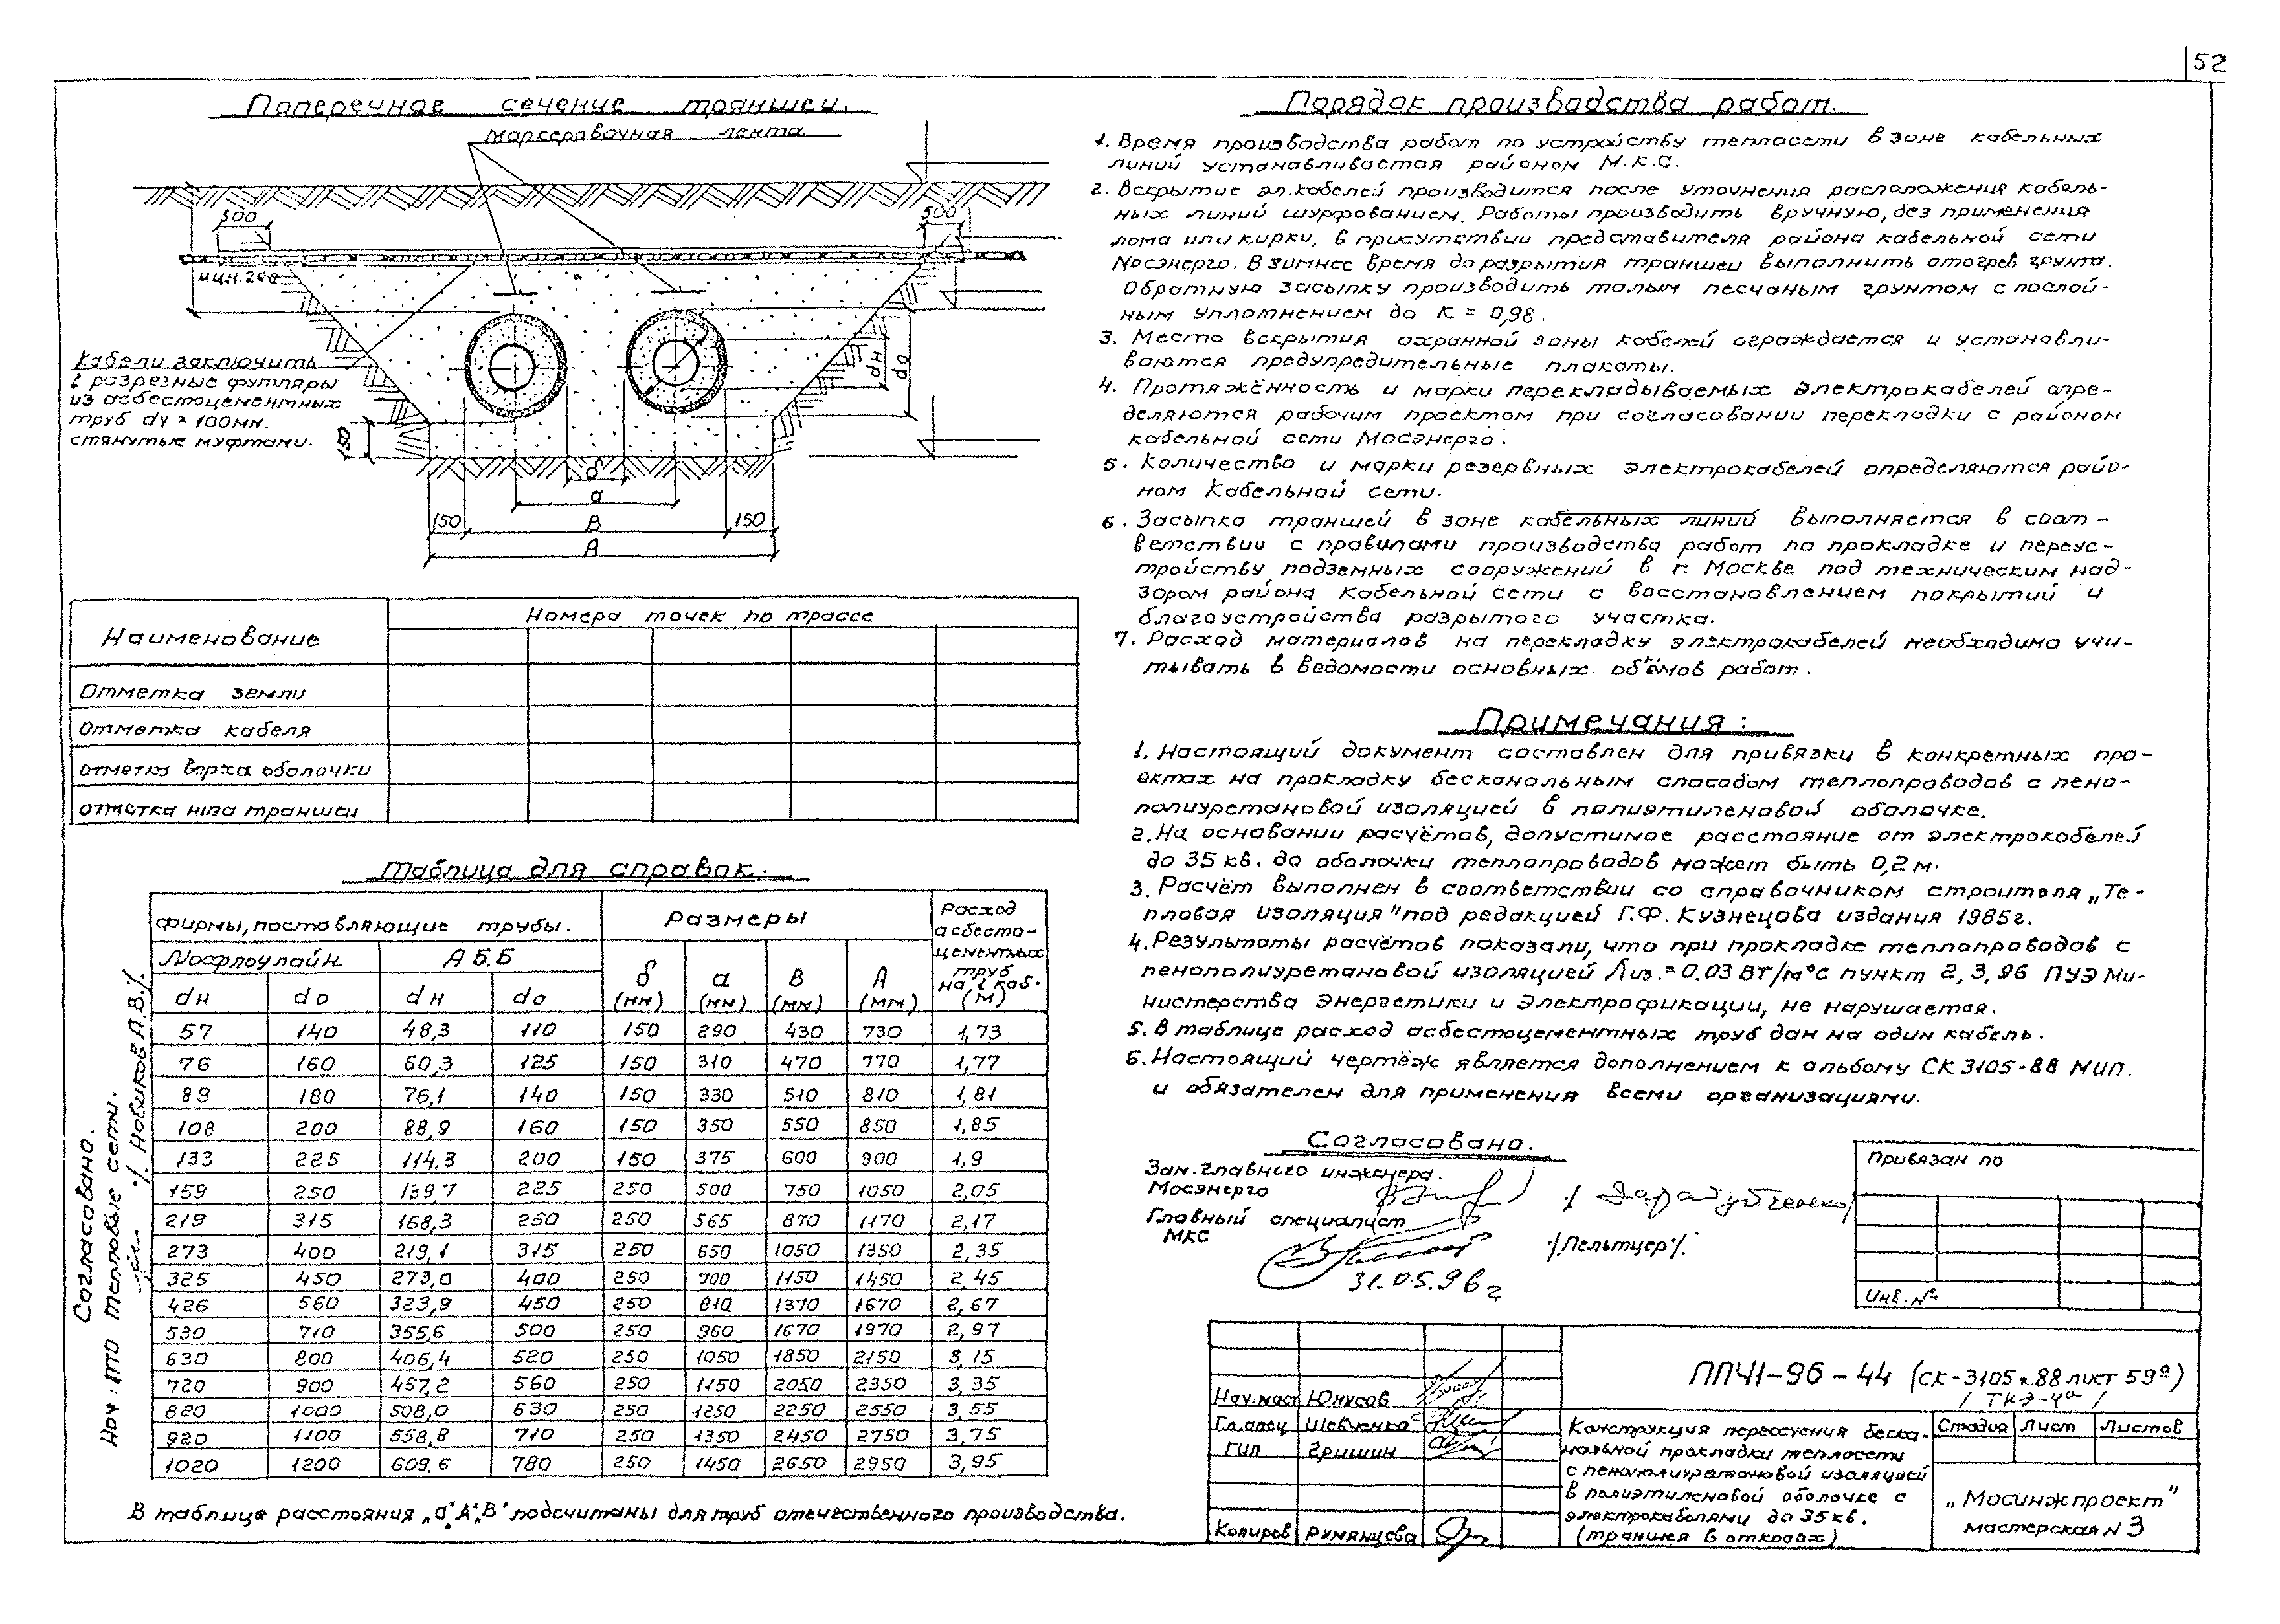 52
Поперечное сечение траншеи.
Маркеровочная лента
500
500
мин. 200
Кабели заключить
в разрезные футляры
из асбестоцементных
труб dу = 100мм.
стянутые муфтами.
150
dн
dо
δ
a
150
В
150
А
Наименование
Номера точек по трассе
Отметка земли
Отметка кабеля
отметка верха оболочки
отметка низа траншеи
Таблица для справок.
Фирмы, поставляющие трубы.
Размеры
Расход асбесто-цементных труб на 1 каб. (м)
Мосфлоулайн
А Б.Б
dн dо dн dо δ (мм) a (мм) В (мм) А (мм)
57 140 48,3 110 150 290 430 730 1,73
76 160 60,3 125 150 310 470 770 1,77
89 180 76,1 140 150 330 510 810 1,81
108 200 88,9 160 150 350 550 850 1,85
133 225 114,3 200 150 375 600 900 1,9
159 250 139,7 225 250 500 750 1050 2,05
219 315 168,3 250 250 565 870 1170 2,17
273 400 219,1 315 250 650 1050 1350 2,35
325 450 273,0 400 250 700 1150 1450 2,45
426 560 323,9 450 250 810 1370 1670 2,67
530 710 355,6 500 250 960 1670 1970 2,97
630 800 406,4 520 250 1050 1850 2150 3,15
720 900 457,2 560 250 1150 2050 2350 3,35
820 1000 508,0 630 250 1250 2250 2550 3,55
920 1100 558,8 710 250 1350 2450 2750 3,75
1020 1200 609,6 780 250 1450 2650 2950 3,95
В таблице расстояния „а“, А“, „В“ подсчитаны для труб отечественного производства.
Согласовано.
Нач: ПТО Тепловые сети.
/. Новиков А.В./.
Порядок производства работ.
1. Время производства работ по устройству теплосети в зоне кабельных
линий устанавливается районом М.К.С.
2. Вскрытие эл.кабелей производится после уточнения расположения кабель-
ных линий шурфованием. Работы производить вручную, без применения
лома или кирки, в присутствии представителя района кабельной сети
Мосэнерго. В зимнее время до разрытия траншеи выполнить отогрев грунта.
Обратную засыпку производить талым песчаным грунтом с послой-
ным уплотнением до К = 0,98.
3. Место вскрытия охранной зоны кабелей ограждается и устанавли-
ваются предупредительные плакаты.
4. Протяжённость и марки перекладываемых электрокабелей опре-
деляются рабочим проектом при согласовании перекладки с районом
кабельной сети Мосэнерго.
5. Количество и марки резервных электрокабелей определяются райо-
ном Кабельной сети.
6. Засыпка траншей в зоне кабельных линий выполняется в соот-
ветствии с правилами производства работ по прокладке и переус-
тройству подземных сооружений в г. Москве под техническим над-
зором района Кабельной сети с восстановлением покрытий и
благоустройства разрытого участка.
7. Расход материалов на перекладку электрокабелей необходимо учи-
тывать в ведомости основных объёмов работ.
Примечания:
1. Настоящий документ составлен для привязки в конкретных про-
ектах на прокладку бесканальным способом теплопроводов с пено-
полиуретановой изоляцией в полиэтиленовой оболочке.
2. На основании расчётов, допустимое расстояние от электрокабелей
до 35 кв. до оболочки теплопроводов может быть 0,2 м.
3. Расчёт выполнен в соответствии со справочником строителя „Те-
пловая изоляция" под редакцией Г.Ф. Кузнецова издания 1985г.
4. Результаты расчётов показали, что при прокладке теплопроводов с
пенополиуретановой изоляцией λиз.=0.03 Вт/м°с пункт 2,3,96 ПУЭ Ми-
нистерства Энергетики и Электрофикации, не нарушается.
5. В таблице расход асбестоцементных труб дан на один кабель.
6. Настоящий чертёж является дополнением к альбому СК 3105-88 МИП.
и обязателен для применения всеми организациями.
Согласовано.
Зам. главного инженера.
Мосэнерго
Главный специалист
МКС
/.Пельтцер/.
31.05.96г
Привязан по
Инв. №
ППЧ1-96-44 (СК-3105-88 лист 59а)
/ ТКЭ-4а /
Нач.маст Юнусов
Гл.спец Шевченко
ГИП Гришин
Копиров Румянцева
Конструкция пересечения беска-
нальной прокладки теплосети
с пенополиуретановой изоляцией
в полиэтиленовой оболочке с
электрокабелями до 35кв.
(траншея в откосах)
Стадия Лист Листов
„Мосинжпроект"
мастерская N 3